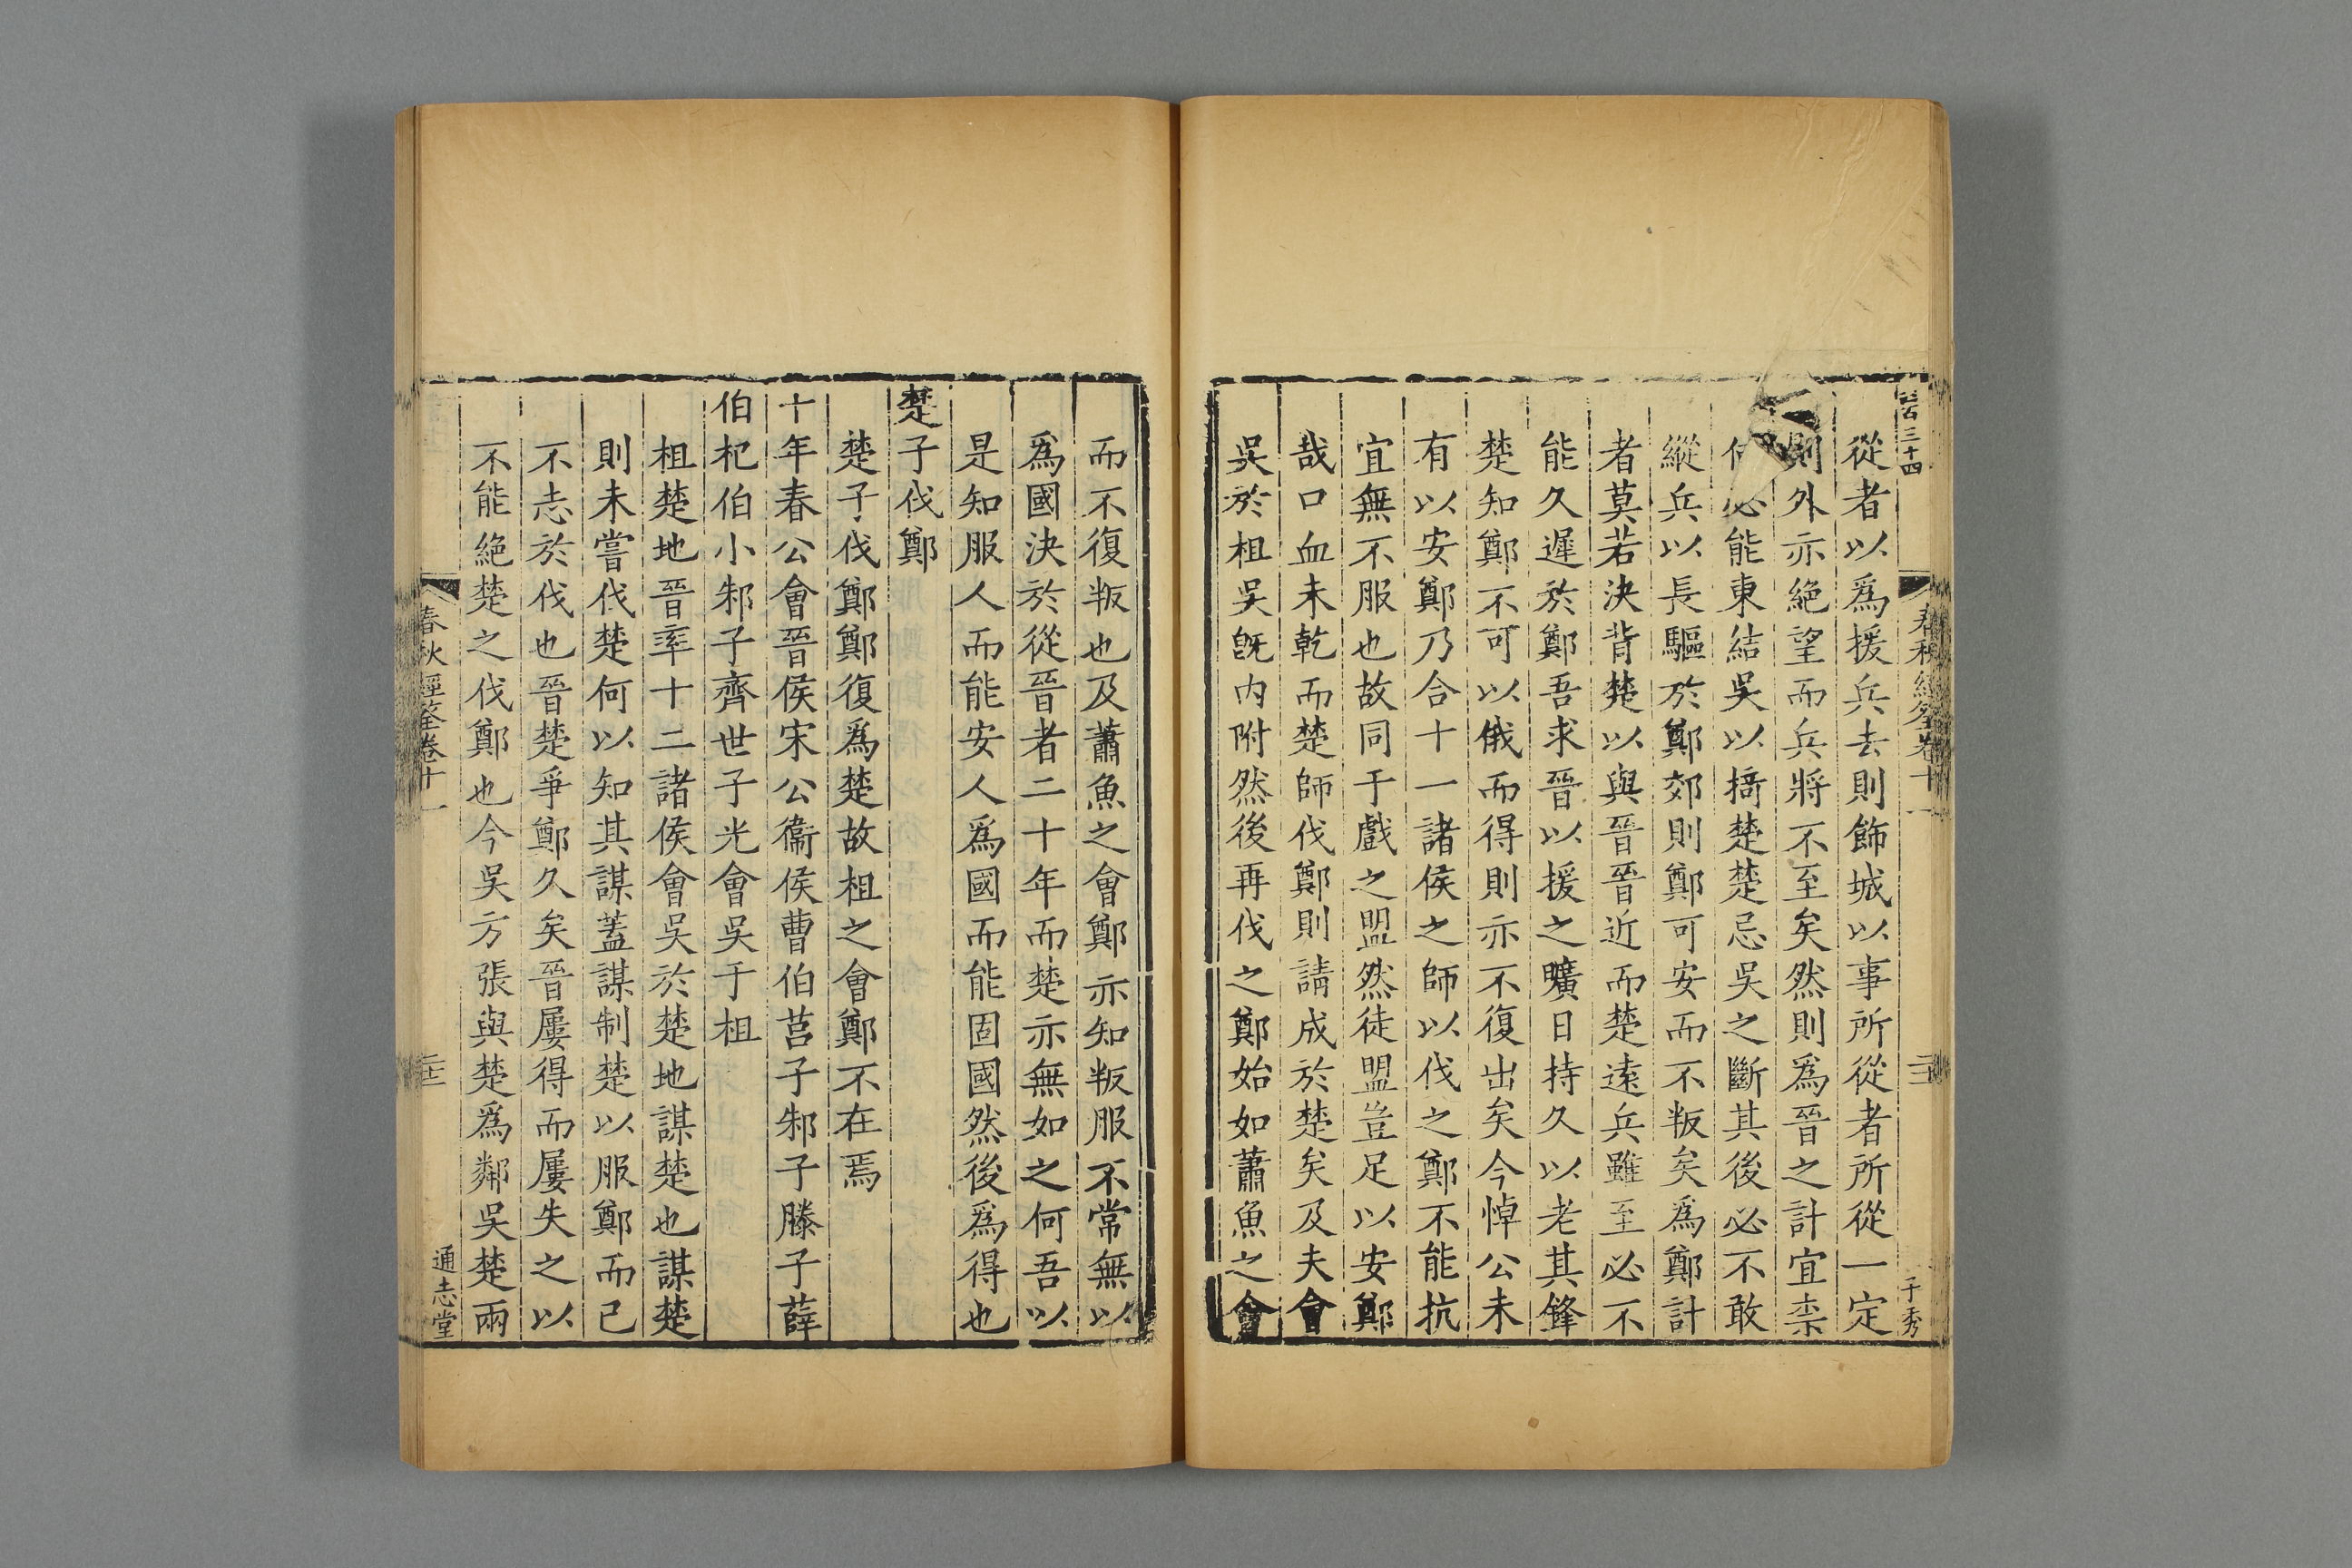 三百三十四
春秋經筌卷十一
二十三
于秀
從者以爲援兵去則飾城以事所從者所從一定
則外亦絶望而兵將不至矣然則爲晉之計宜柰
必能東結吳以掎楚楚忌吳之斷其後必不敢
縱兵以長驅於鄭郊則鄭可安而不叛矣爲鄭計
者莫若決背楚以與晉晉近而楚遠兵雖至必不
能久遲於鄭吾求晉以援之曠日持久以老其鋒
楚知鄭不可以俄而得則亦不復出矣今悼公未
有以安鄭乃合十一諸侯之師以伐之鄭不能抗
宜無不服也故同于戲之盟然徒盟豈足以安鄭
哉口血未乾而楚師伐鄭則請成於楚矣及夫會
吳於柤吳旣内附然後再伐之鄭始如蕭魚之會
而不復叛也及蕭魚之會鄭亦知叛服不常無以
爲國決於從晉者二十年而楚亦無如之何吾以
是知服人而能安人爲國而能固國然後爲得也
楚子伐鄭
楚子伐鄭鄭復爲楚故柤之會鄭不在焉
十年春公會晉侯宋公衞侯曹伯莒子邾子滕子薛
伯杞伯小邾子齊世子光會吳于柤
柤楚地晉率十二諸侯會吳於楚地謀楚也謀楚
則未嘗伐楚何以知其謀蓋謀制楚以服鄭而已
不志於伐也晉楚爭鄭久矣晉屢得而屢失之以
不能絶楚之伐鄭也今吳方張與楚爲鄰吳楚兩
春秋經筌卷十一
二十三
通志堂